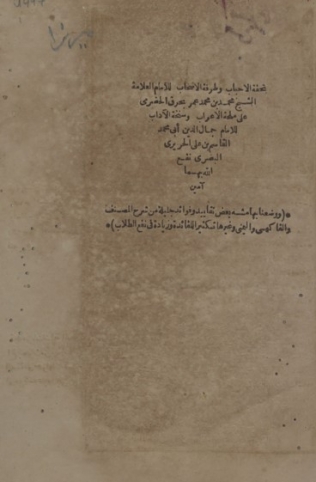 تحفة الاحباب وطرفة الاصحاب للامام العلامة
الشيخ محمد بن محمد بحرق الحضرمى
على ملحة الاعراب وسنحة الآداب
للامام جمال الدين أبى محمد
القاسم بن على الحريرى
البصرى نفع
الله بهما
آمين
*(ووضعنا بهامشه بعض تقاييد وفوائد جليلة من شرح المصنف
والفاكهى والعينى وغيرها تكثيرا للفائدة وزيادة فى نفع الطلاب)*